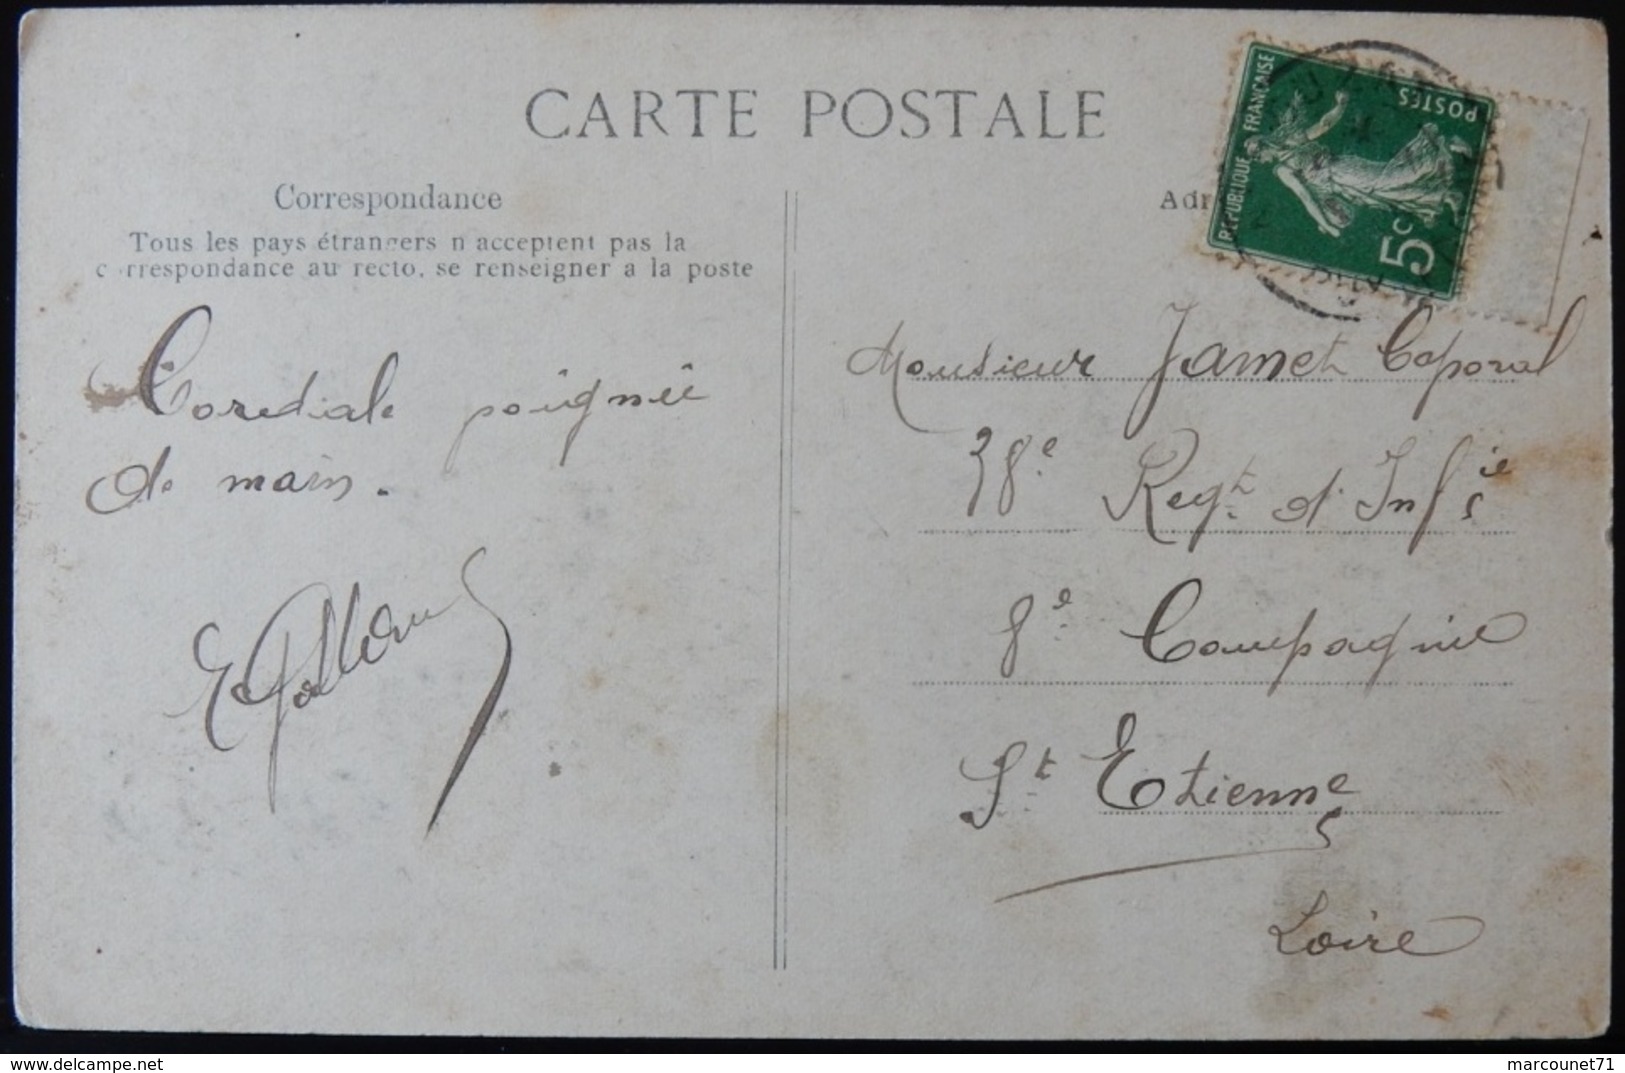 CARTE POSTALE
Correspondance
Tous les pays étrangers n acceptent pas la
correspondance au recto, se renseigner a la poste
Cordiale poignée
de main.
Adr
REPUBLIQUE FRANÇAISE
POSTES
5c
Monsieur Jamet Caporal
38e Regt d'Infie
8e Compagnie
St Etienne
Loire
delcampe.net
marcounet71